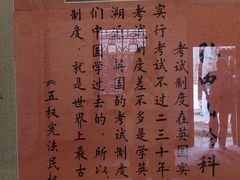 科
考试制度在英国实
实行不过二三十年
考试制度差不多是学英
英国的考试制度
们中国学过去的。所以
制度，就是世界上最古
《五权宪法民权